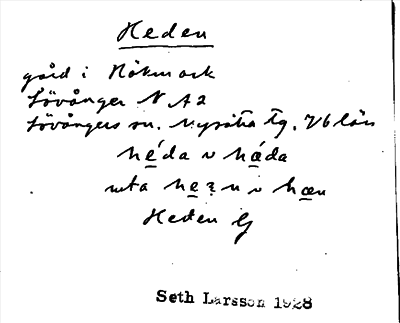 Heden
gård i Hökmark
Lövånger N A2
Lövångers sn. Nysätra tg. Vb län
héda v hǽda
uta he:n v hæn
Heden G
Seth Larsson 1928